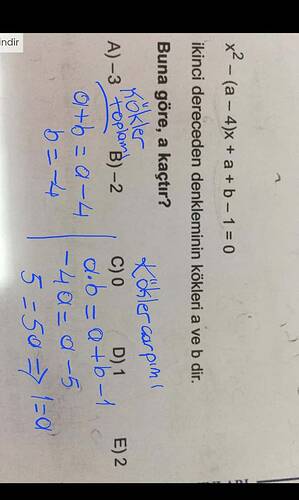 indir
x² − (a − 4)x + a + b − 1 = 0
ikinci dereceden denkleminin kökleri a ve b dir.
Buna göre, a kaçtır?
A) −3 B) −2 C) 0 D) 1 E) 2
Kökler
toplamı
a+b = a − 4
b = −4
Kökler çarpımı
a.b = a+b−1
−4a = a − 5
5 = 5a ⇒ 1 = a